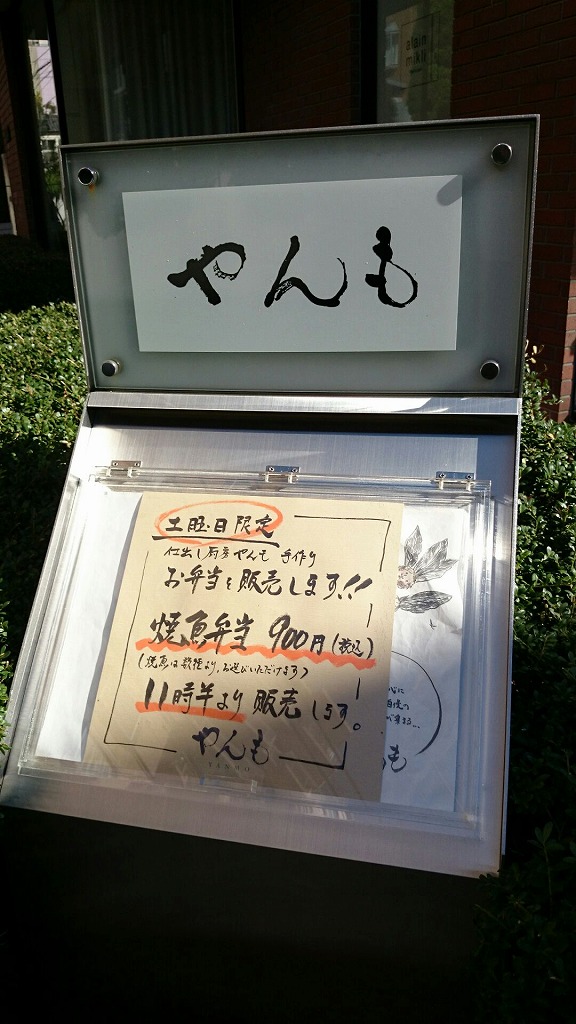 alain
mikli
やんも
土曜日限定
仕出し厨房やんも 手作り
お弁当を販売します!!
焼魚弁当 900円(税込)
(焼魚は数種より、お選びいただけます)
11時半より 販売します。
やんも
YANMO